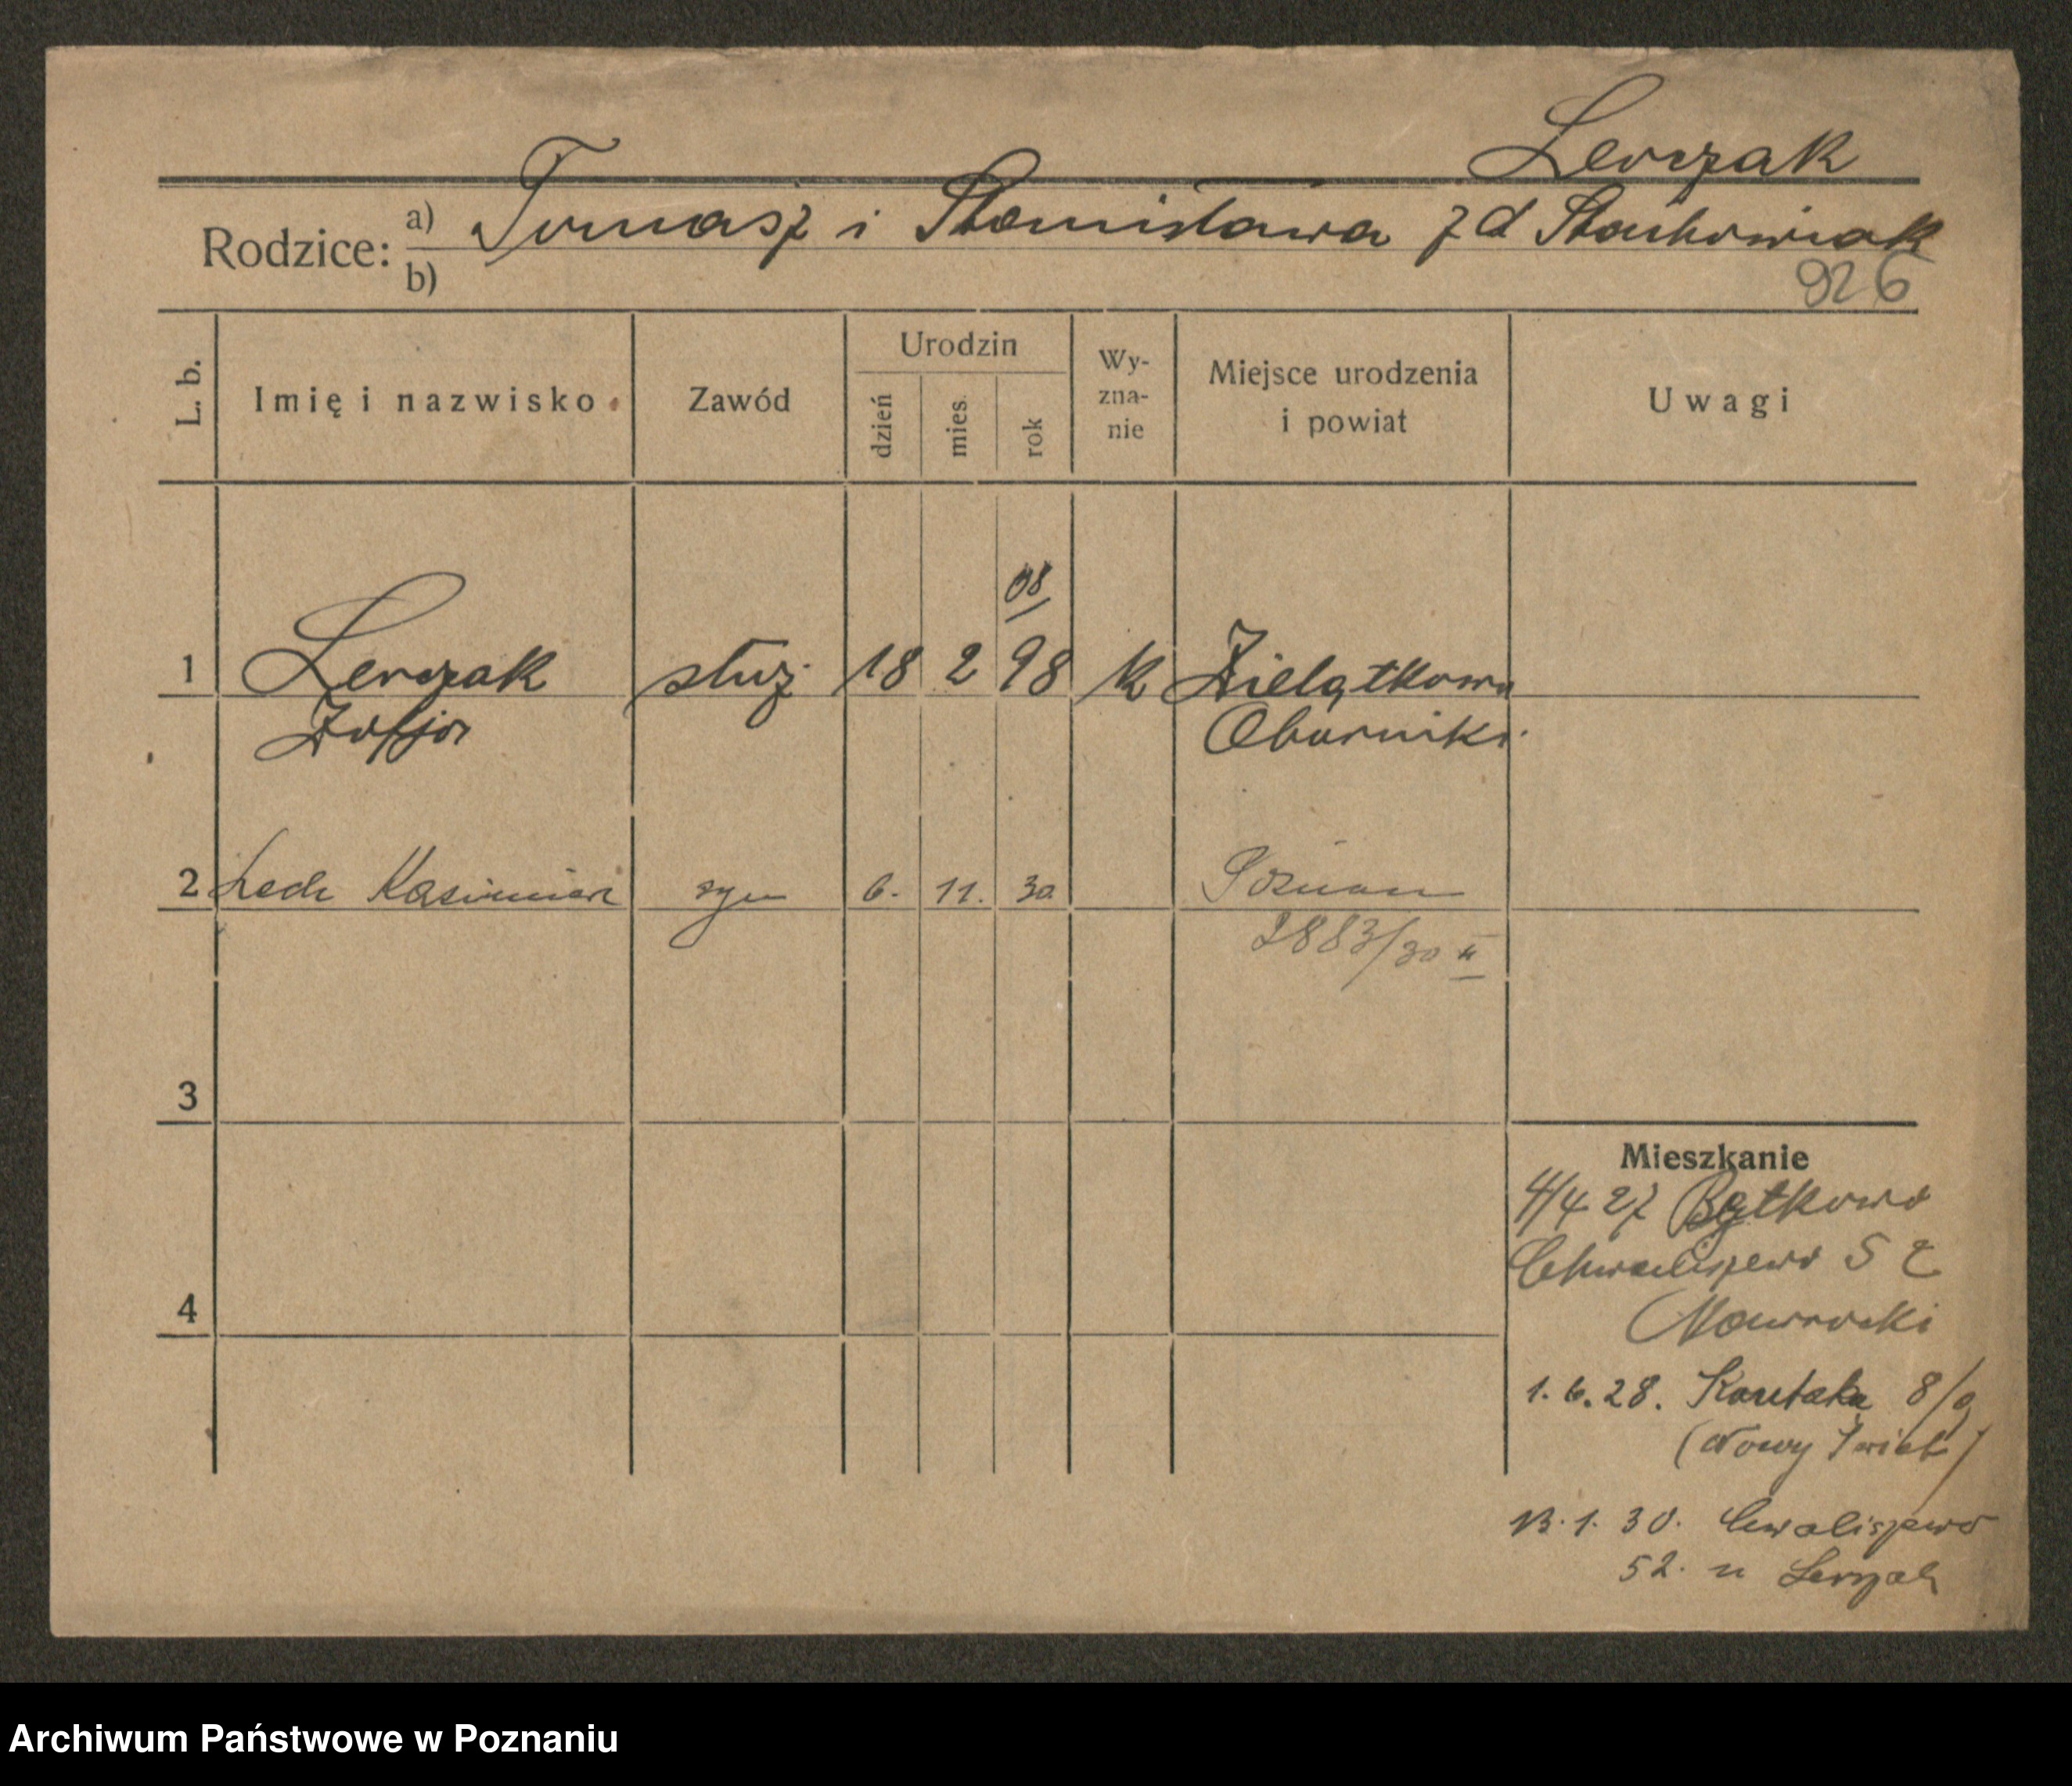 Lerczak
Rodzice: a) Tomasz i Stanisława z d Stachowiak
b)
926
L. b. Imię i nazwisko Zawód Urodzin dzień mies. rok Wy-zna-nie Miejsce urodzenia i powiat Uwagi
08
1 Lerczak służ. 18 2 98 k Zielątkowo
Zofja Oborniki
2 Lech Kazimierz syn 6. 11. 30 Poznan
2883/30 II
3
Mieszkanie
4/4 27 Bytkowo
Chwaliszewo 52
4
Nawrocki
1. 6. 28. 8/9
(Nowy Świat)
13. 1. 30. Cwaliszewo
52. u Lerczak
Archiwum Państwowe w Poznaniu